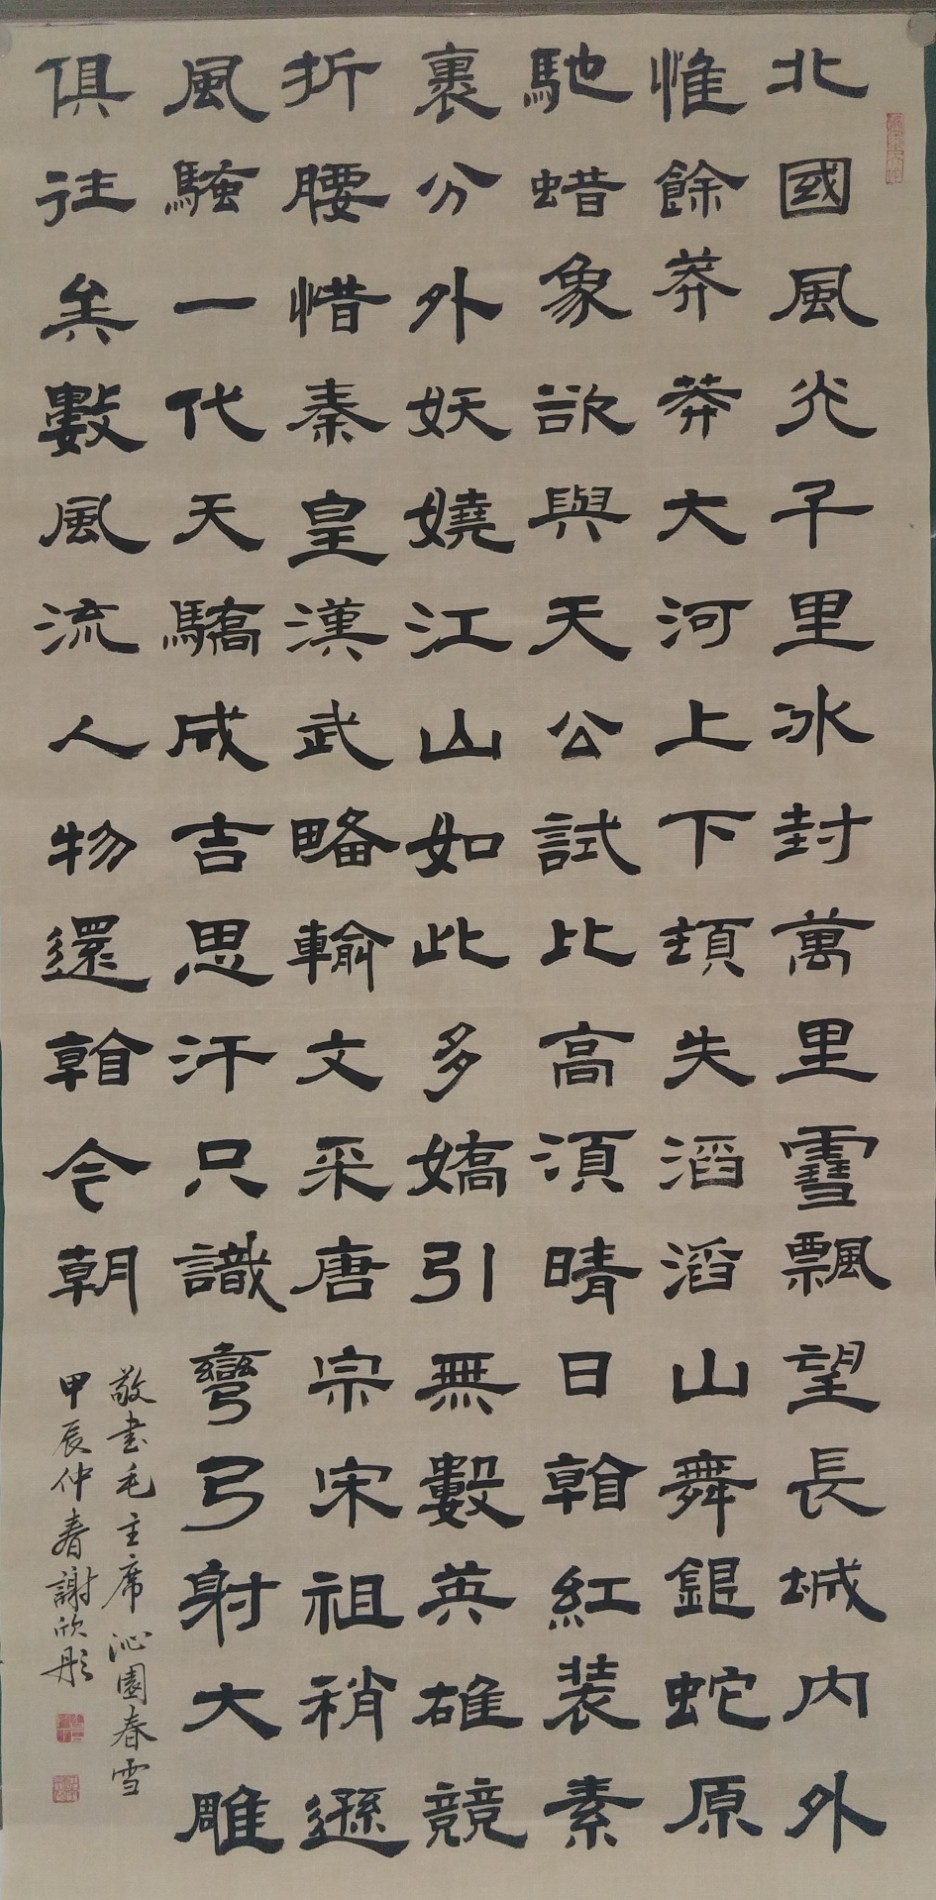 北國風光千里冰封萬里雪飄望長城内外
惟餘莽莽大河上下頓失滔滔山舞銀蛇原
馳蜡象欲與天公試比高須晴日看紅装素
裹分外妖嬈江山如此多嬌引無數英雄競
折腰惜秦皇漢武略輸文采唐宗宋祖稍遜
風騷一代天驕成吉思汗只識彎弓射大雕
俱往矣數風流人物還看今朝
敬書毛主席沁園春雪
甲辰仲春謝欣彤